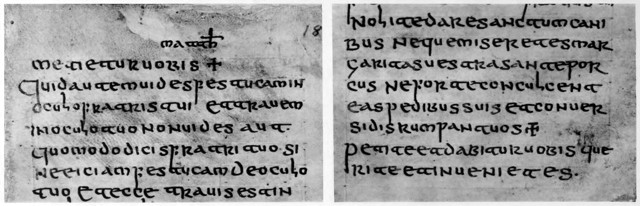 matth
18
metietur uobis +
Quid autem uides festucam in
oculo fratris tui et trauem
in oculo tuo non uides aut·
quomodo dicis fratri tuo si
ne eiciam festucam de oculo
tuo et ecce trauis est in
Nolite dare sanctum cani
bus neque miseretes mar
garitas uestras ante por
cus ne forte conculcent
eas pedibus suis et conuer
si disrumpant uos +
petite et dabitur uobis que
rite et inuenietes.